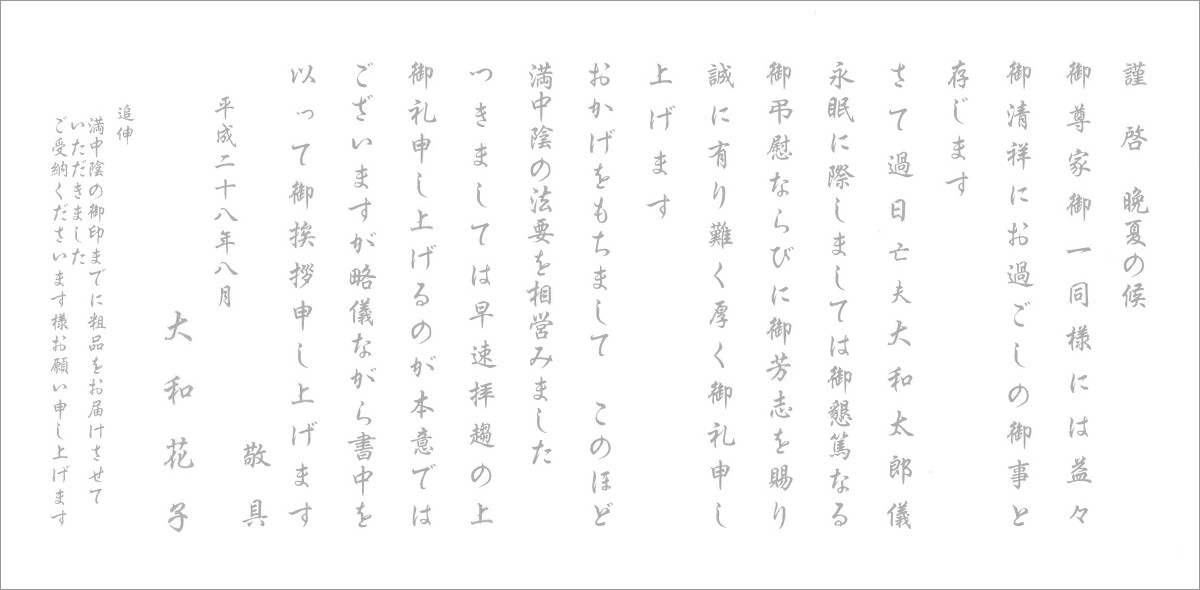 謹 啓 晩夏の候
御尊家御一同様には益々
御清祥にお過ごしの御事と
存じます
さて過日亡夫大和太郎儀
永眠に際しましては御懇篤なる
御弔慰ならびに御芳志を賜り
誠に有り難く厚く御礼申し
上げます
おかげをもちまして このほど
満中陰の法要を相営みました
つきましては早速拝趨の上
御礼申し上げるのが本意では
ございますが略儀ながら書中を
以って御挨拶申し上げます
敬具
平成二十八年八月
大和花子
追伸
満中陰の御印までに粗品をお届けさせて
いただきました
ご受納くださいます様お願い申し上げます